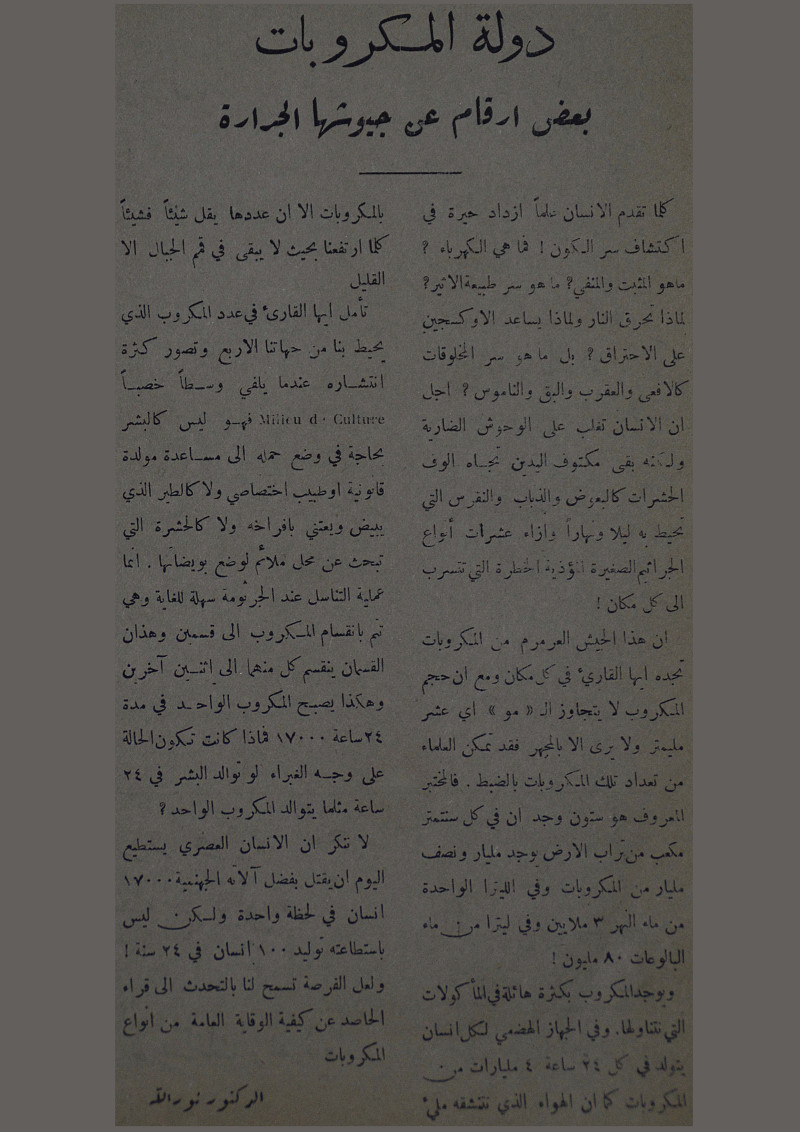 دولة المكروبات
بعض ارقام عن جيوشها الجرارة
كلما تقدم الانسان علماً ازداد حيرة في
اكتشاف سر الكون ! فما هي الكهرباء ؟
ماهو المثبت والمنفي؟ ما هو سر طبيعة الاثير؟
لماذا تحرق النار ولماذا يساعد الاوكسجين
على الاحتراق ؟ بل ما هو سر المخلوقات
كالافعى والعقرب والبق والناموس ؟ اجل
ان الانسان تغلب على الوحوش الضارية
ولكنه بقى مكتوف اليدين تجاه الوف
الحشرات كالبعوض والذباب والنقرس التي
تحيط به ليلا ونهاراً وازاء عشرات أنواع
الجراثيم الصغيرة المؤذية الخطرة التي تتسرب
الى كل مكان !
ان هذا الجيش العرمرم من المكروبات
تجده ايها القارئ في كل مكان ومع ان حجم
المكروب لا يتجاوز الـ « مو » اي عشر
مليمتر ولا يرى الا بالمجهر فقد تمكن العلماء
من تعداد تلك المكروبات بالضبط . فالمختبر
المعروف هو ستون وجد ان في كل سنتمتر
مكعب من تراب الارض يوجد مليار ونصف
مليار من المكروبات وفي الليترا الواحدة
من ماء النهر ٣ ملايين وفي ليترا من ماء
البالوعات ٨٠ مليون !
ويوجد المكروب بكثرة هائلة في المأكولات
التي نتناولها. وفي الجهاز الهضمي لكل انسان
يتولد في كل ٢٤ ساعة ٤ مليارات من
المكروبات كما ان الهواء الذي نتنشقه مليء
بالمكروبات الا ان عددها يقل شيئاً فشيئاً
كلما ارتفعنا بحيث لا يبقى في قمم الجبال الا
القليل
تأمل ايها القارئ في عدد المكروب الذي
يحيط بنا من جهاتنا الاربع وتصور كثرة
انتشاره عندما يلفي وسطاً خصباً
Milieu d· Culture فهو ليس كالبشر
بحاجة في وضع حمله الى مساعدة مولدة
قانونية او طبيب اختصاصي ولا كالطير الذي
يبيض ويعتني بافراخه ولا كالحشرة التي
تبحث عن محل ملائم لوضع بويضاتها . انما
عملية التناسل عند الجرثومة سهلة للغاية وهي
تتم بانقسام المكروب الى قسمين وهذان
القسمان ينقسم كل منهما الى اثنين آخرين
وهكذا يصبح المكروب الواحد في مدة
٢٤ ساعة ١٧٠٠٠ فماذا كانت تكون الحالة
على وجه الغبراء لو توالد البشر في ٢٤
ساعة مثلما يتوالد المكروب الواحد ؟
لا ننكر ان الانسان العصري يستطيع
اليوم ان يقتل بفضل آلاته الجهنمية ١٧٠٠٠
انسان في لحظة واحدة ولكن ليس
باستطاعته توليد ١٠٠ انسان في ٢٤ سنة !
ولعل الفرصة تسمح لنا بالتحدث الى قراء
الحاصد عن كيفية الوقاية العامة من انواع
المكروبات
الدكتور نور الله